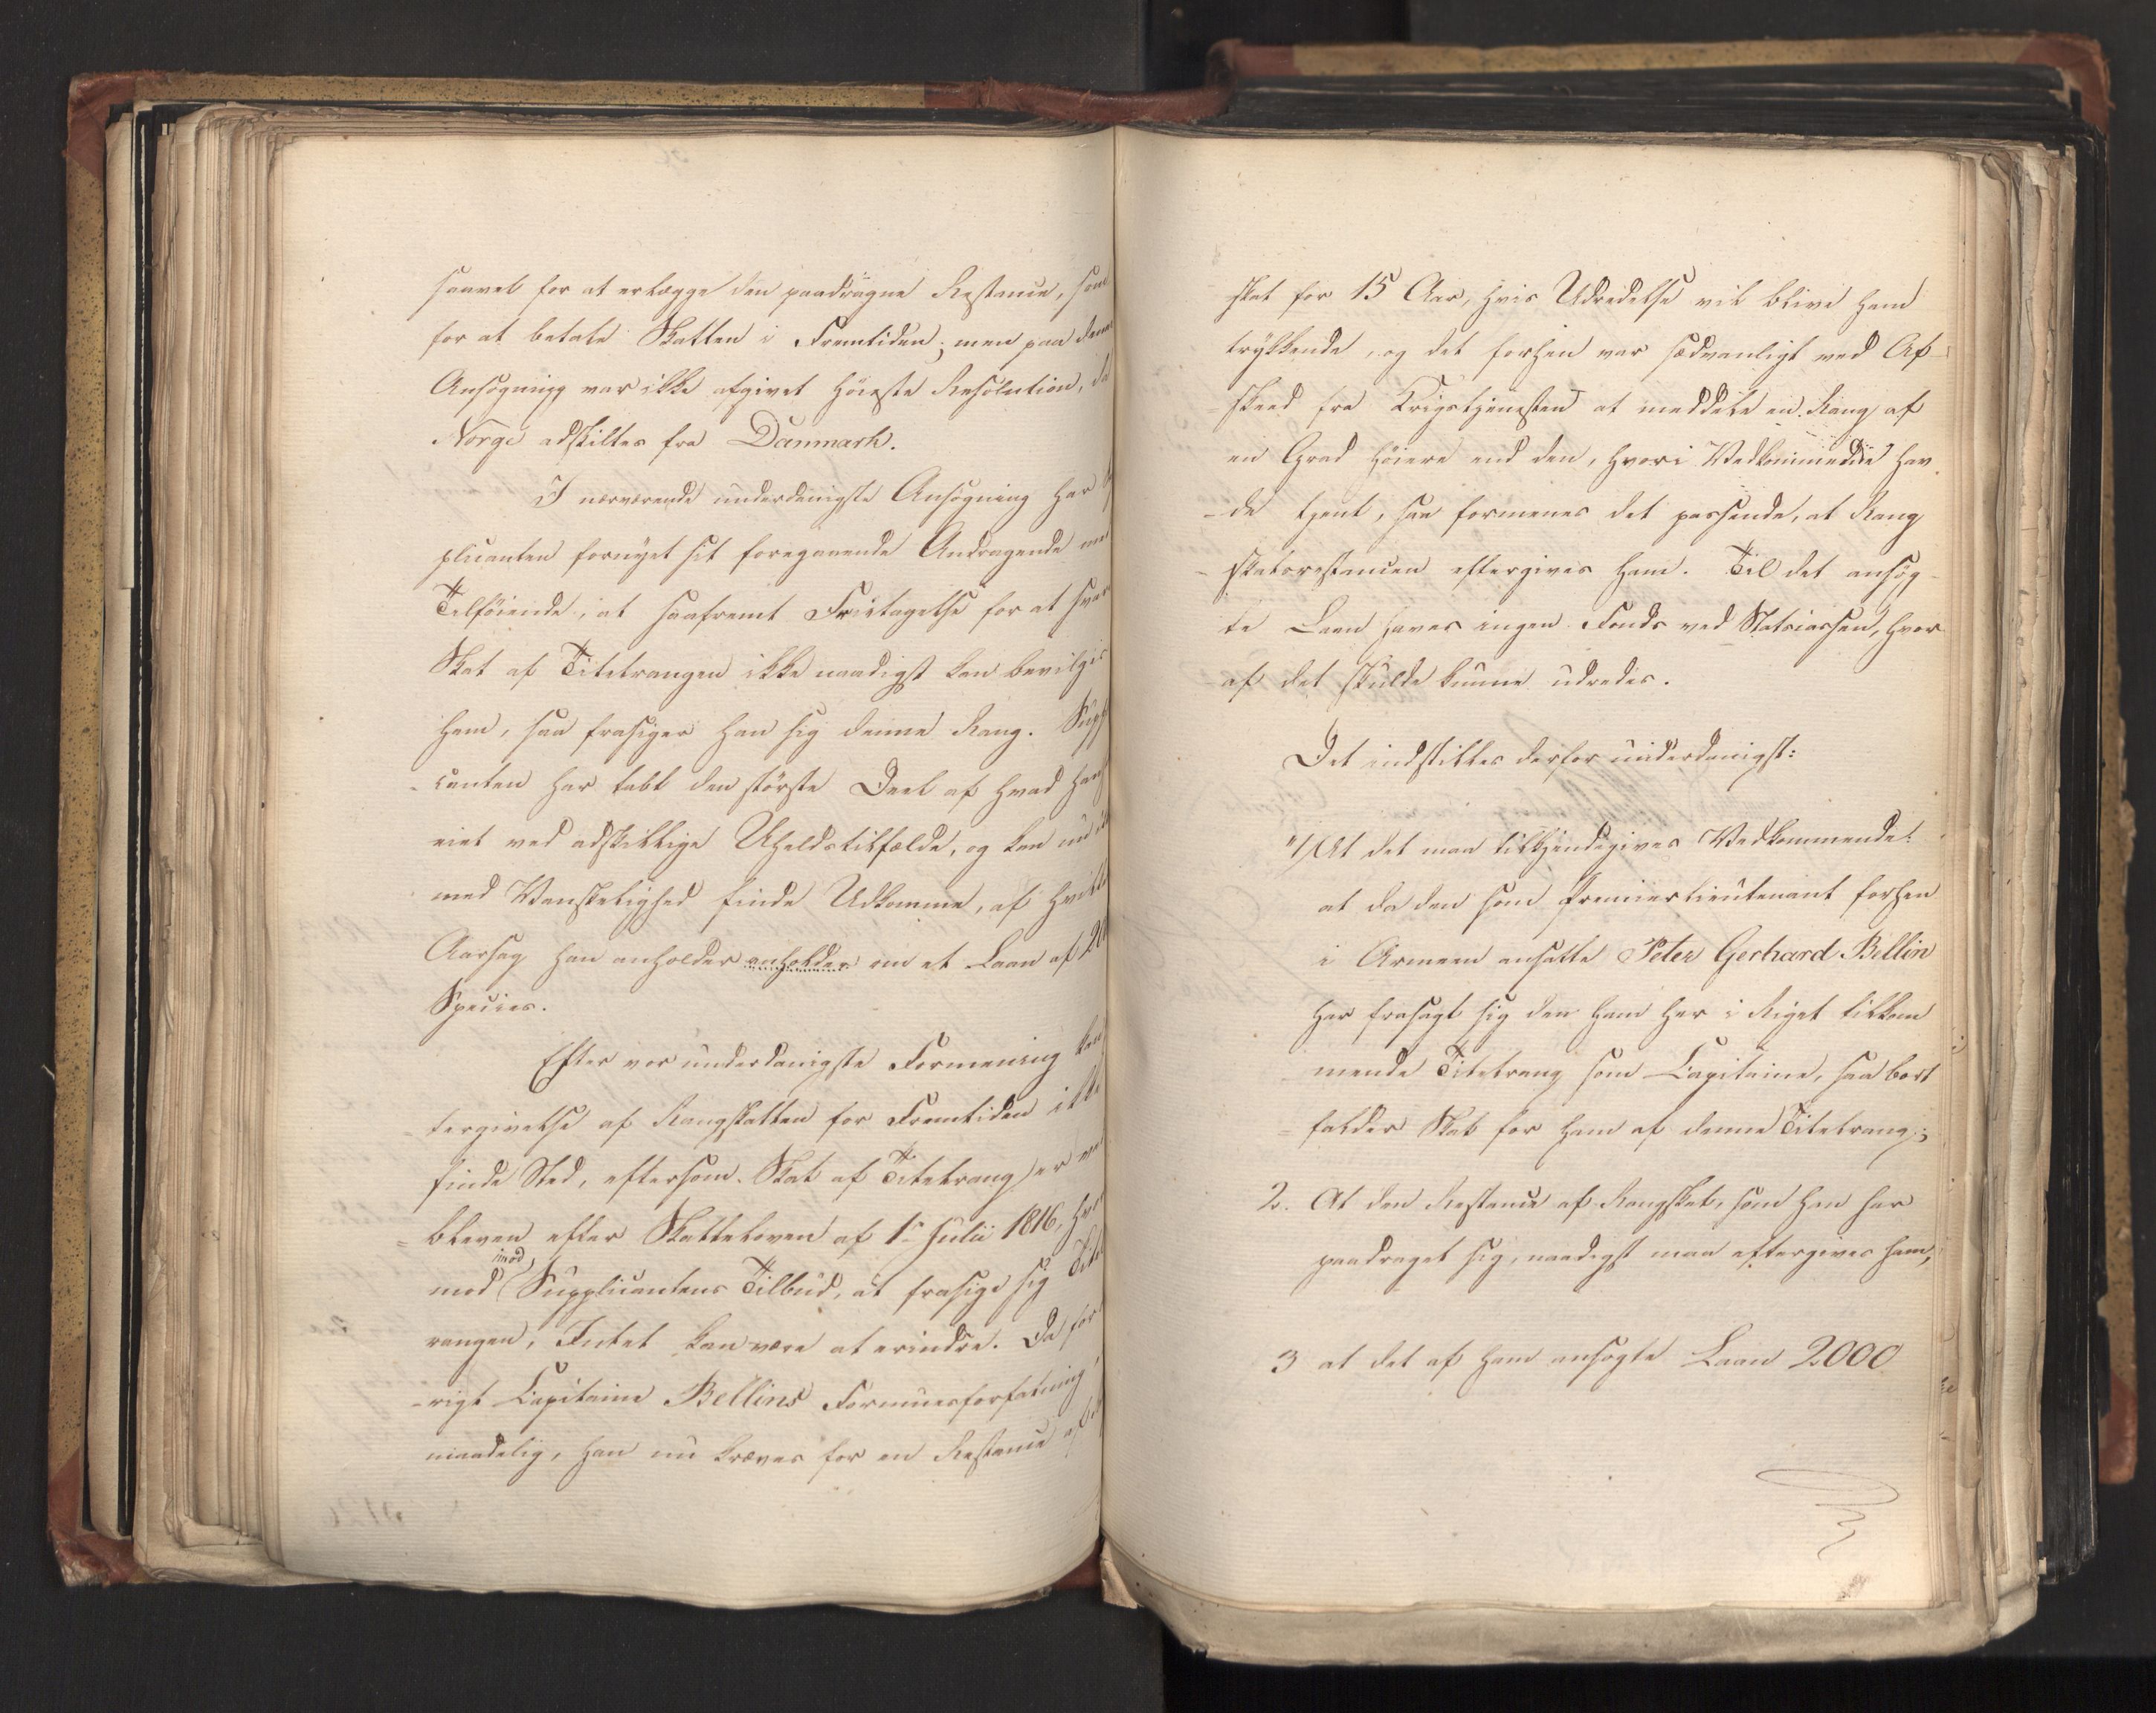 saavel for at erlægge den paadragne Restance, som
for at betale Skatten i Fremtiden; men paa denne
Ansøgning var ikke afgivet høieste Resolution, da
Norge adskiltes fra Danmark.
I nærværende underdanigste Ansøgning har
plicanten fornyet sit foregaaende Andragende med
Tilføiende, at saafremt Fritagelse for at svare
Skat af Titelrangen ikke naadigst kan bevilges
ham, saa frasiger han sig denne Rang. Suppli
-canten har tabt den største Deel af hvad han
eiet ved adskillige Uheldstilfælde, og kan nu
med Vanskelighed finde Udkomme, af hvilken
Aarsag han anholder anholder om et Laan af
Species.
Efter vor underdanigste Formening kan
-tergivelse af Rangskatten for Fremtiden ikke
finde Sted, eftersom Skat af Titelrang er
= bleven efter Skatteloven af 1ste Julii 1816,
mod imod Supplicantens Tilbud, at frasige sig Titel
rangen, Intet kan være at erindre. Da for
-rigt Capitaine Bellins Formuesforfatning
maadelig, han nu kræves for en Restance af
skat for 15 Aar, hvis Udredelse vil blive ham
trykkende, og det forhen var sædvanligt ved Af-
-skeed fra Krigstjenesten at meddele en Rang af
en Grad høiere end den, hvori Vedkommende hav
-de tjent, saa formenes det passende, at Rang
-skatsrestancen eftergives ham. Til det ansøg-
te Laan haves ingen Fonds ved Statscassen, hvor
-af det skulde kunne udredes.
Det indstilles derfor underdanigst:
1/ At det maa tilkjendegives Vedkommende:
at da den som Premierlieutenant forhen
i Armeen ansatte Peter Gerhard Bellin
har frasagt sig den ham her i Riget tilkom
mende Titelrang som Capitaine, saa bort
= falder Skat for ham af denne Titelrang;
2. At den Restance af Rangskat, som han har
paadraget sig, naadigst maa eftergives ham,
3 at det af ham ansøgte Laan 2000